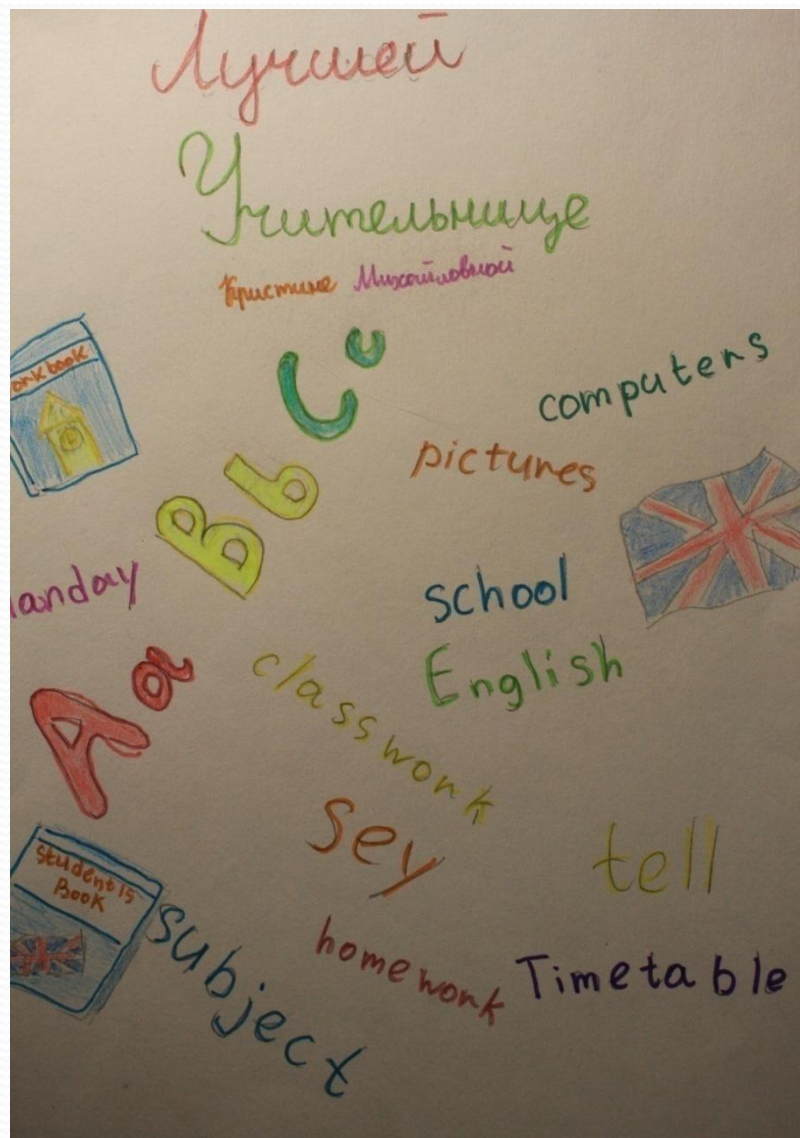 Лучшей
Учительнице
Кристине Михайловной
Cc
computers
orkbook
pictures
Bb
anday
school
English
Aa
classwork
sey
tell
Student is
Book
subject
homework
Timetable